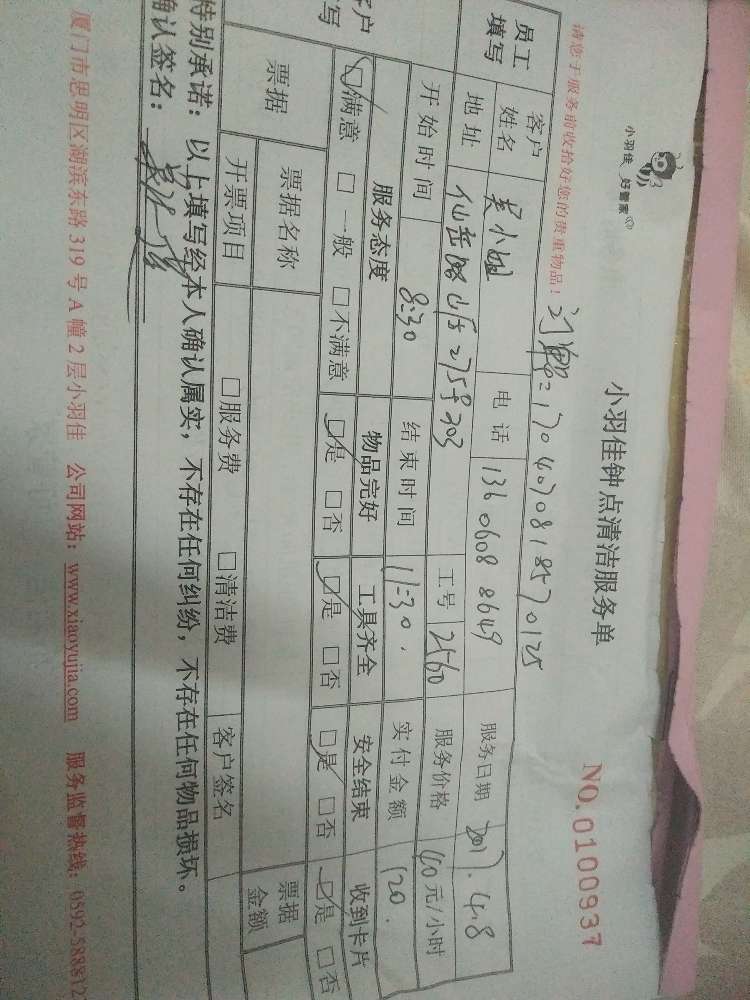 小羽佳 好管家
小羽佳钟点清洁服务单
请您于服务前收拾好您的贵重物品!
NO. 0100937
1704070818570125
员工填写 客户姓名 吴小姐 电话 136 0608 8649 服务日期 2017.4.8
地址 仙岳路 275号303 工号 2560 服务价格 40元/小时
开始时间 8:30 结束时间 11:30. 实付金额 120.
客户填写 服务态度 物品完好 工具齐全 安全结束 收到卡片
☑满意 □一般 □不满意 ☑是 □否 ☑是 □否 ☑是 □否 ☑是 □否
票据 票据名称 票据金额
开票项目 □服务费 □清洁费 客户签名
特别承诺:以上填写经本人确认属实,不存在任何纠纷,不存在任何物品损坏。
确认签名:
厦门市思明区湖滨东路 319 号 A 幢 2 层小羽佳 公司网站:www.xiaoyujia.com 服务监督热线:0592-588812